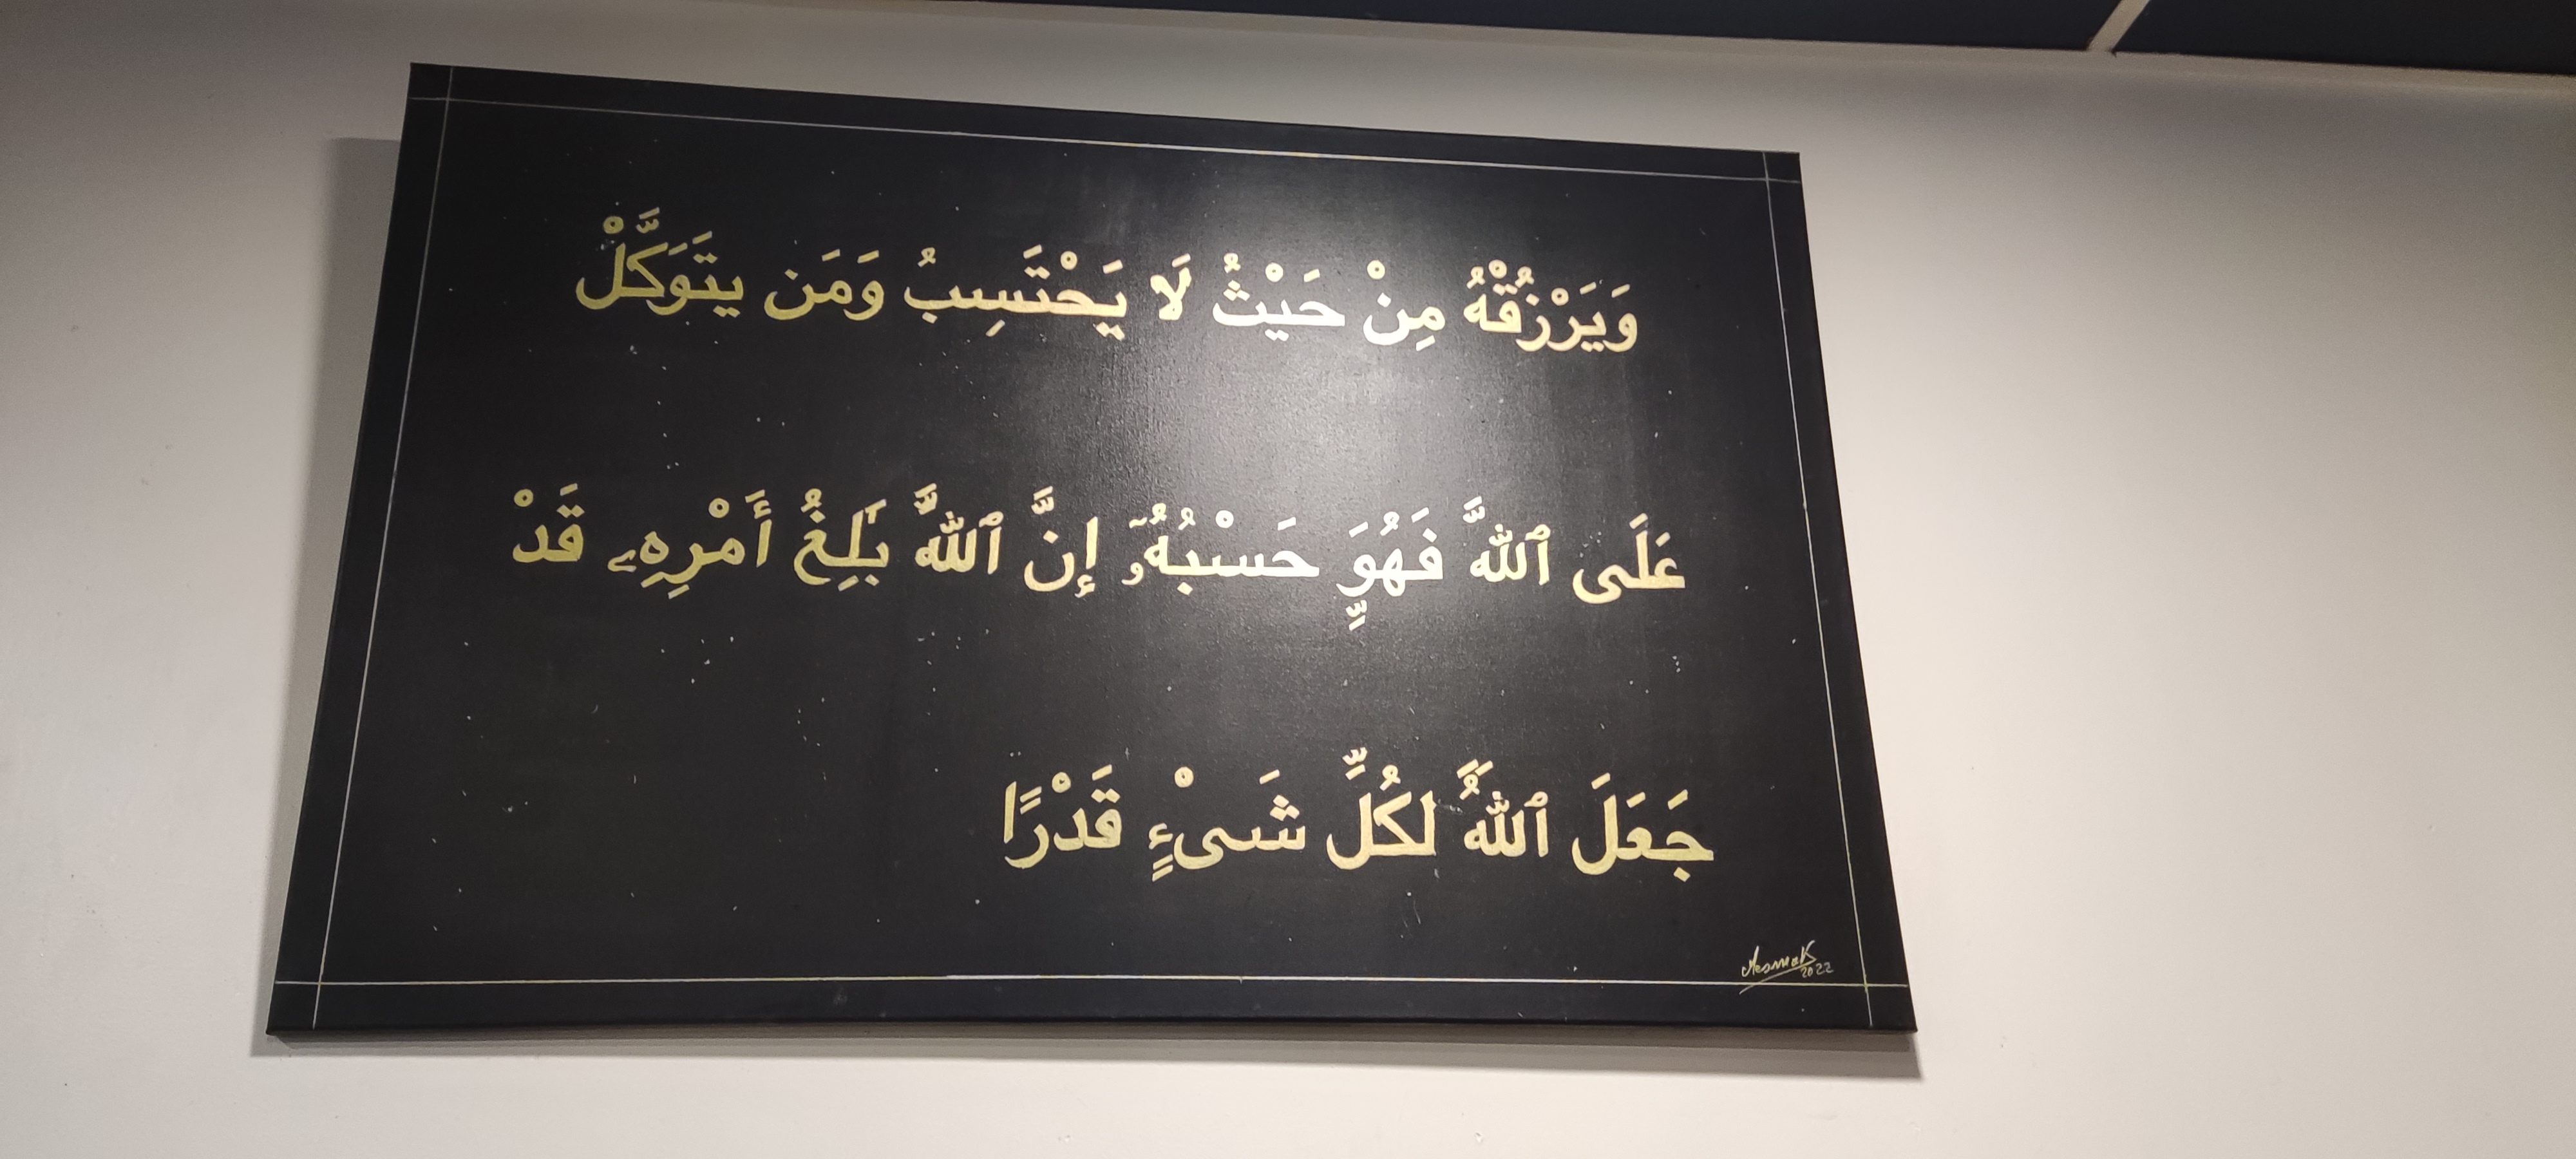 وَيَرْزُقْهُ مِنْ حَيْثُ لَا يَحْتَسِبُ وَمَن يتَوَكَّلْ
عَلَى ٱللَّهِ فَهُوَ حَسْبُهُۥٓ إِنَّ ٱللَّهَ بَٰلِغُ أَمْرِهِۦ قَدْ
جَعَلَ ٱللَّهُ لِكُلِّ شَىْءٍ قَدْرًا
2022